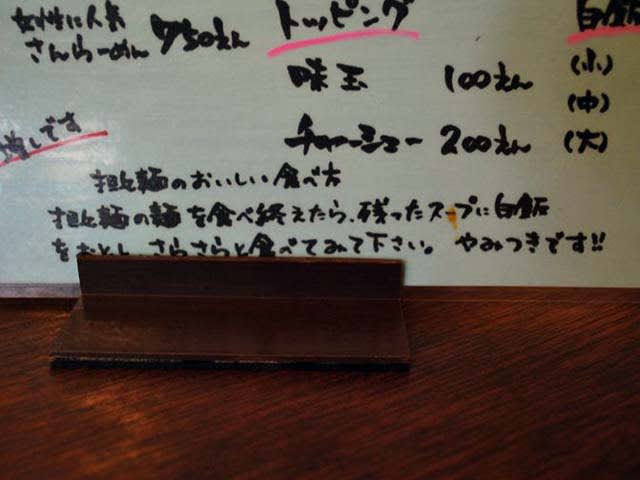 女性に人気
さんらーめん 750えん
トッピング
味玉 100えん
チャーシュー 200えん
白飯
(小)
(中)
(大)
増しです
担々麺のおいしい食べ方
担々麺の麺を食べ終えたら、残ったスープに白飯
をおとし、さらさらと食べてみて下さい。 やみつきです!!